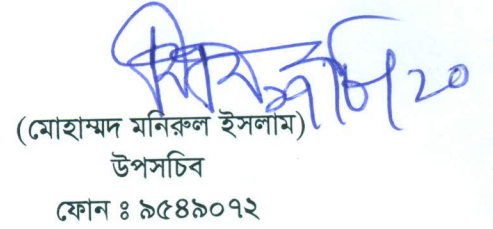 (মোহাম্মদ মনিরুল ইসলাম)
উপসচিব
ফোন ঃ ৯৫৪৯০৭২